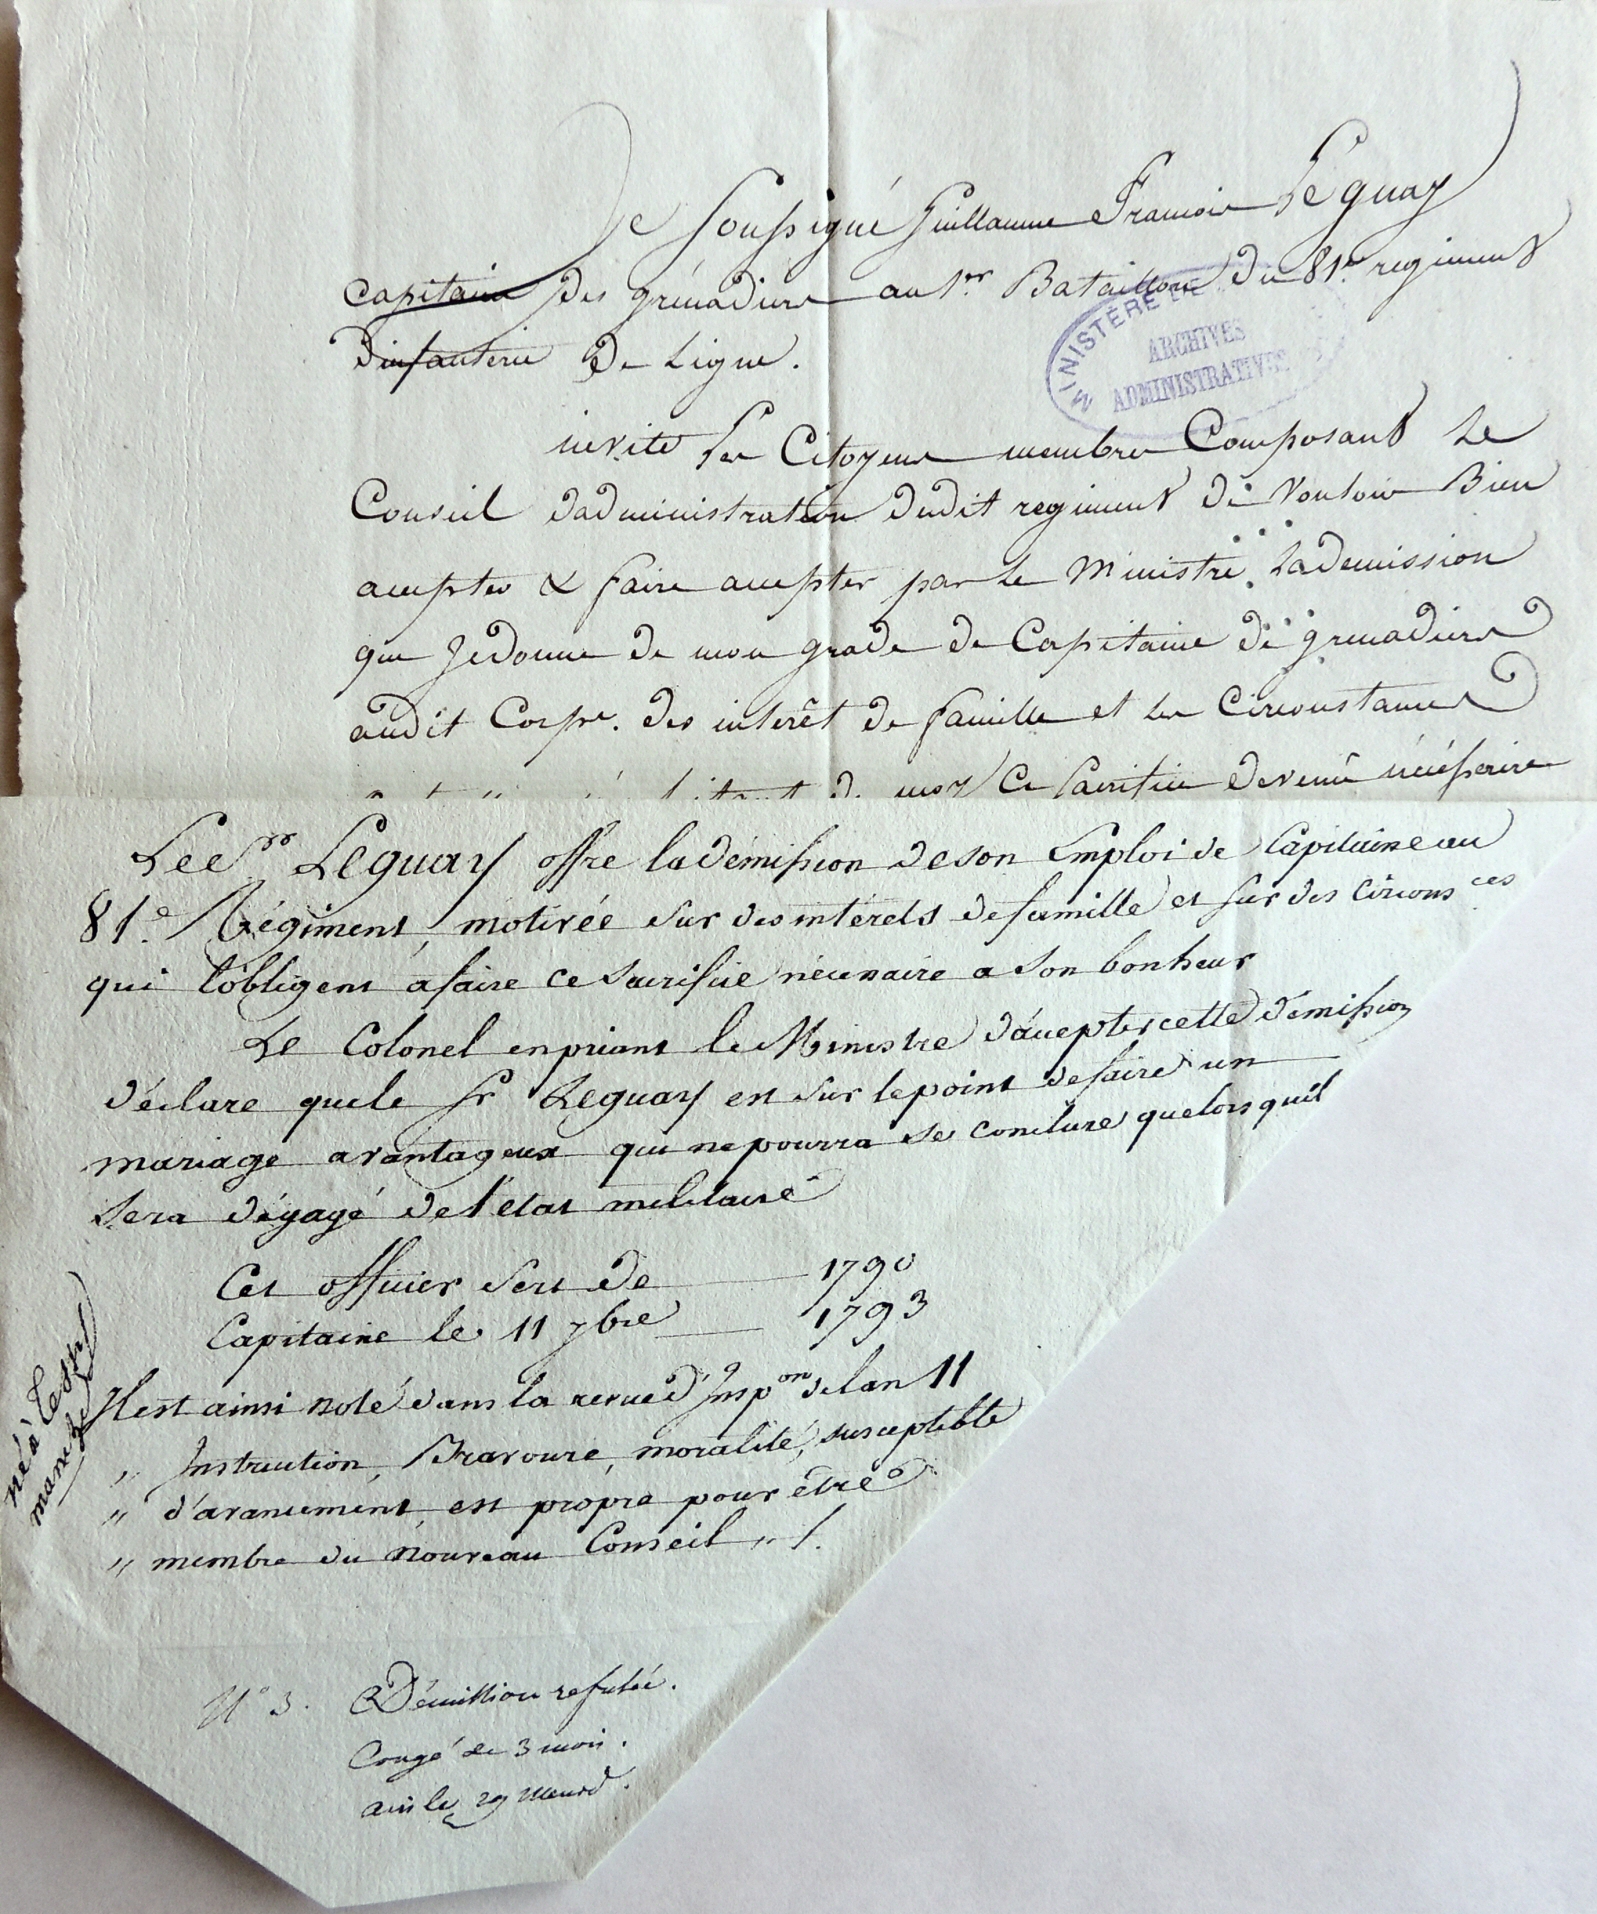 Je soussigné Guillaume Francois Léguay
capitaine des grenadiers au 1er Bataillon du 81e regiment
dinfanterie De Ligne.
MINISTÈRE DE
ARCHIVES
ADMINISTRATIVES
invite Les Citoyens membres Composant Le
Conseil dadministration dudit regiment de Vouloir Bien
accepter & faire accepter par Le Ministre Lademission
que Jedonne de mon grade de Capitaine de grenadiers
audit Corps. des interêt de famille et les Circonstances
de moy Ce Sacrifice devenû nécéssaire
Le Sr Leguay offre la démission de son Emploi de Capitaine au
81e. Régiment, motivée sur des intérets de famille et sur des circonsces
qui l'obligent a faire ce sacrifice nécessaire a son bonheur
Le Colonel en priant le Ministre d'accepter cette démission
déclare que le Sr Leguay est sur le point de faire un
mariage avantageux qui ne pourra se conclure que lorsqu'il
sera dégagé de l'état militaire
Cet officier sert de 1790
Capitaine le 11 7bre 1793
né à Tessy
manche
Il est ainsi noté dans la revue d'Inspon de l'an 11
" Instruction, Bravoure, moralité, susceptible
" d'avancement, est propre pour être
" membre du nouveau Conseil "
N° 3. Démission refusée.
Congé de 3 mois.
avis le 29 Messd.